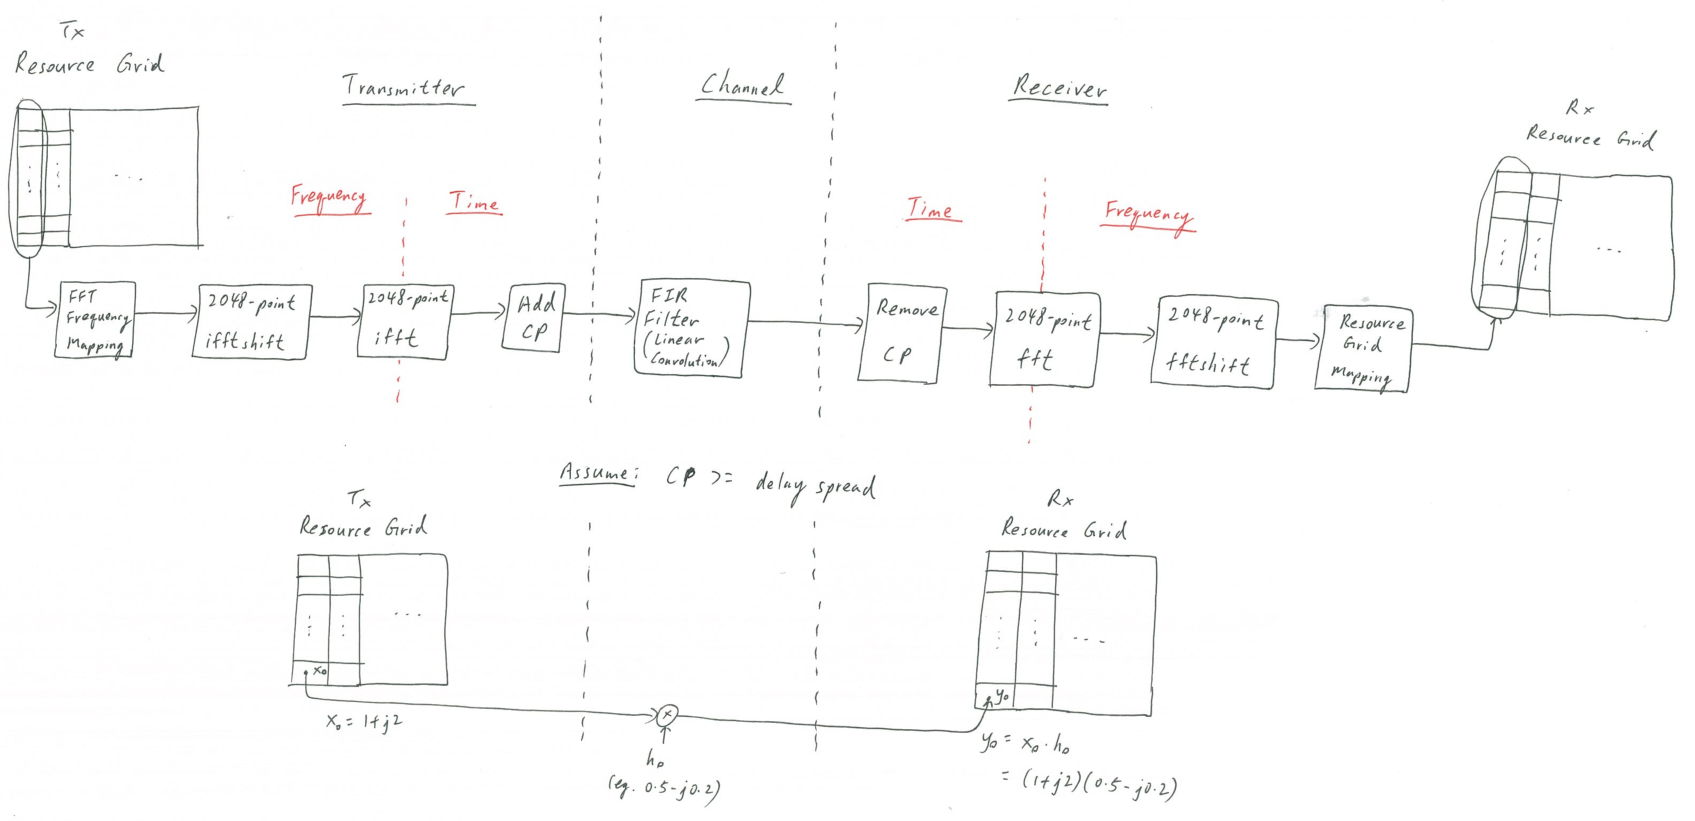 Tx
Resource Grid
Transmitter
Channel
Receiver
Rx
Resource Grid
...
...
Frequency
Time
Time
Frequency
FFT
Frequency
Mapping
2048-point
ifftshift
2048-point
ifft
Add
CP
FIR
Filter
(Linear
Convolution)
Remove
CP
2048-point
fft
2048-point
fftshift
Resource
Grid
Mapping
Assume: CP >= delay spread
Tx
Resource Grid
Rx
Resource Grid
...
...
x₀
y₀
x₀ = 1+j2
×
h₀
(eg. 0.5-j0.2)
y₀ = x₀ · h₀
= (1+j2)(0.5-j0.2)